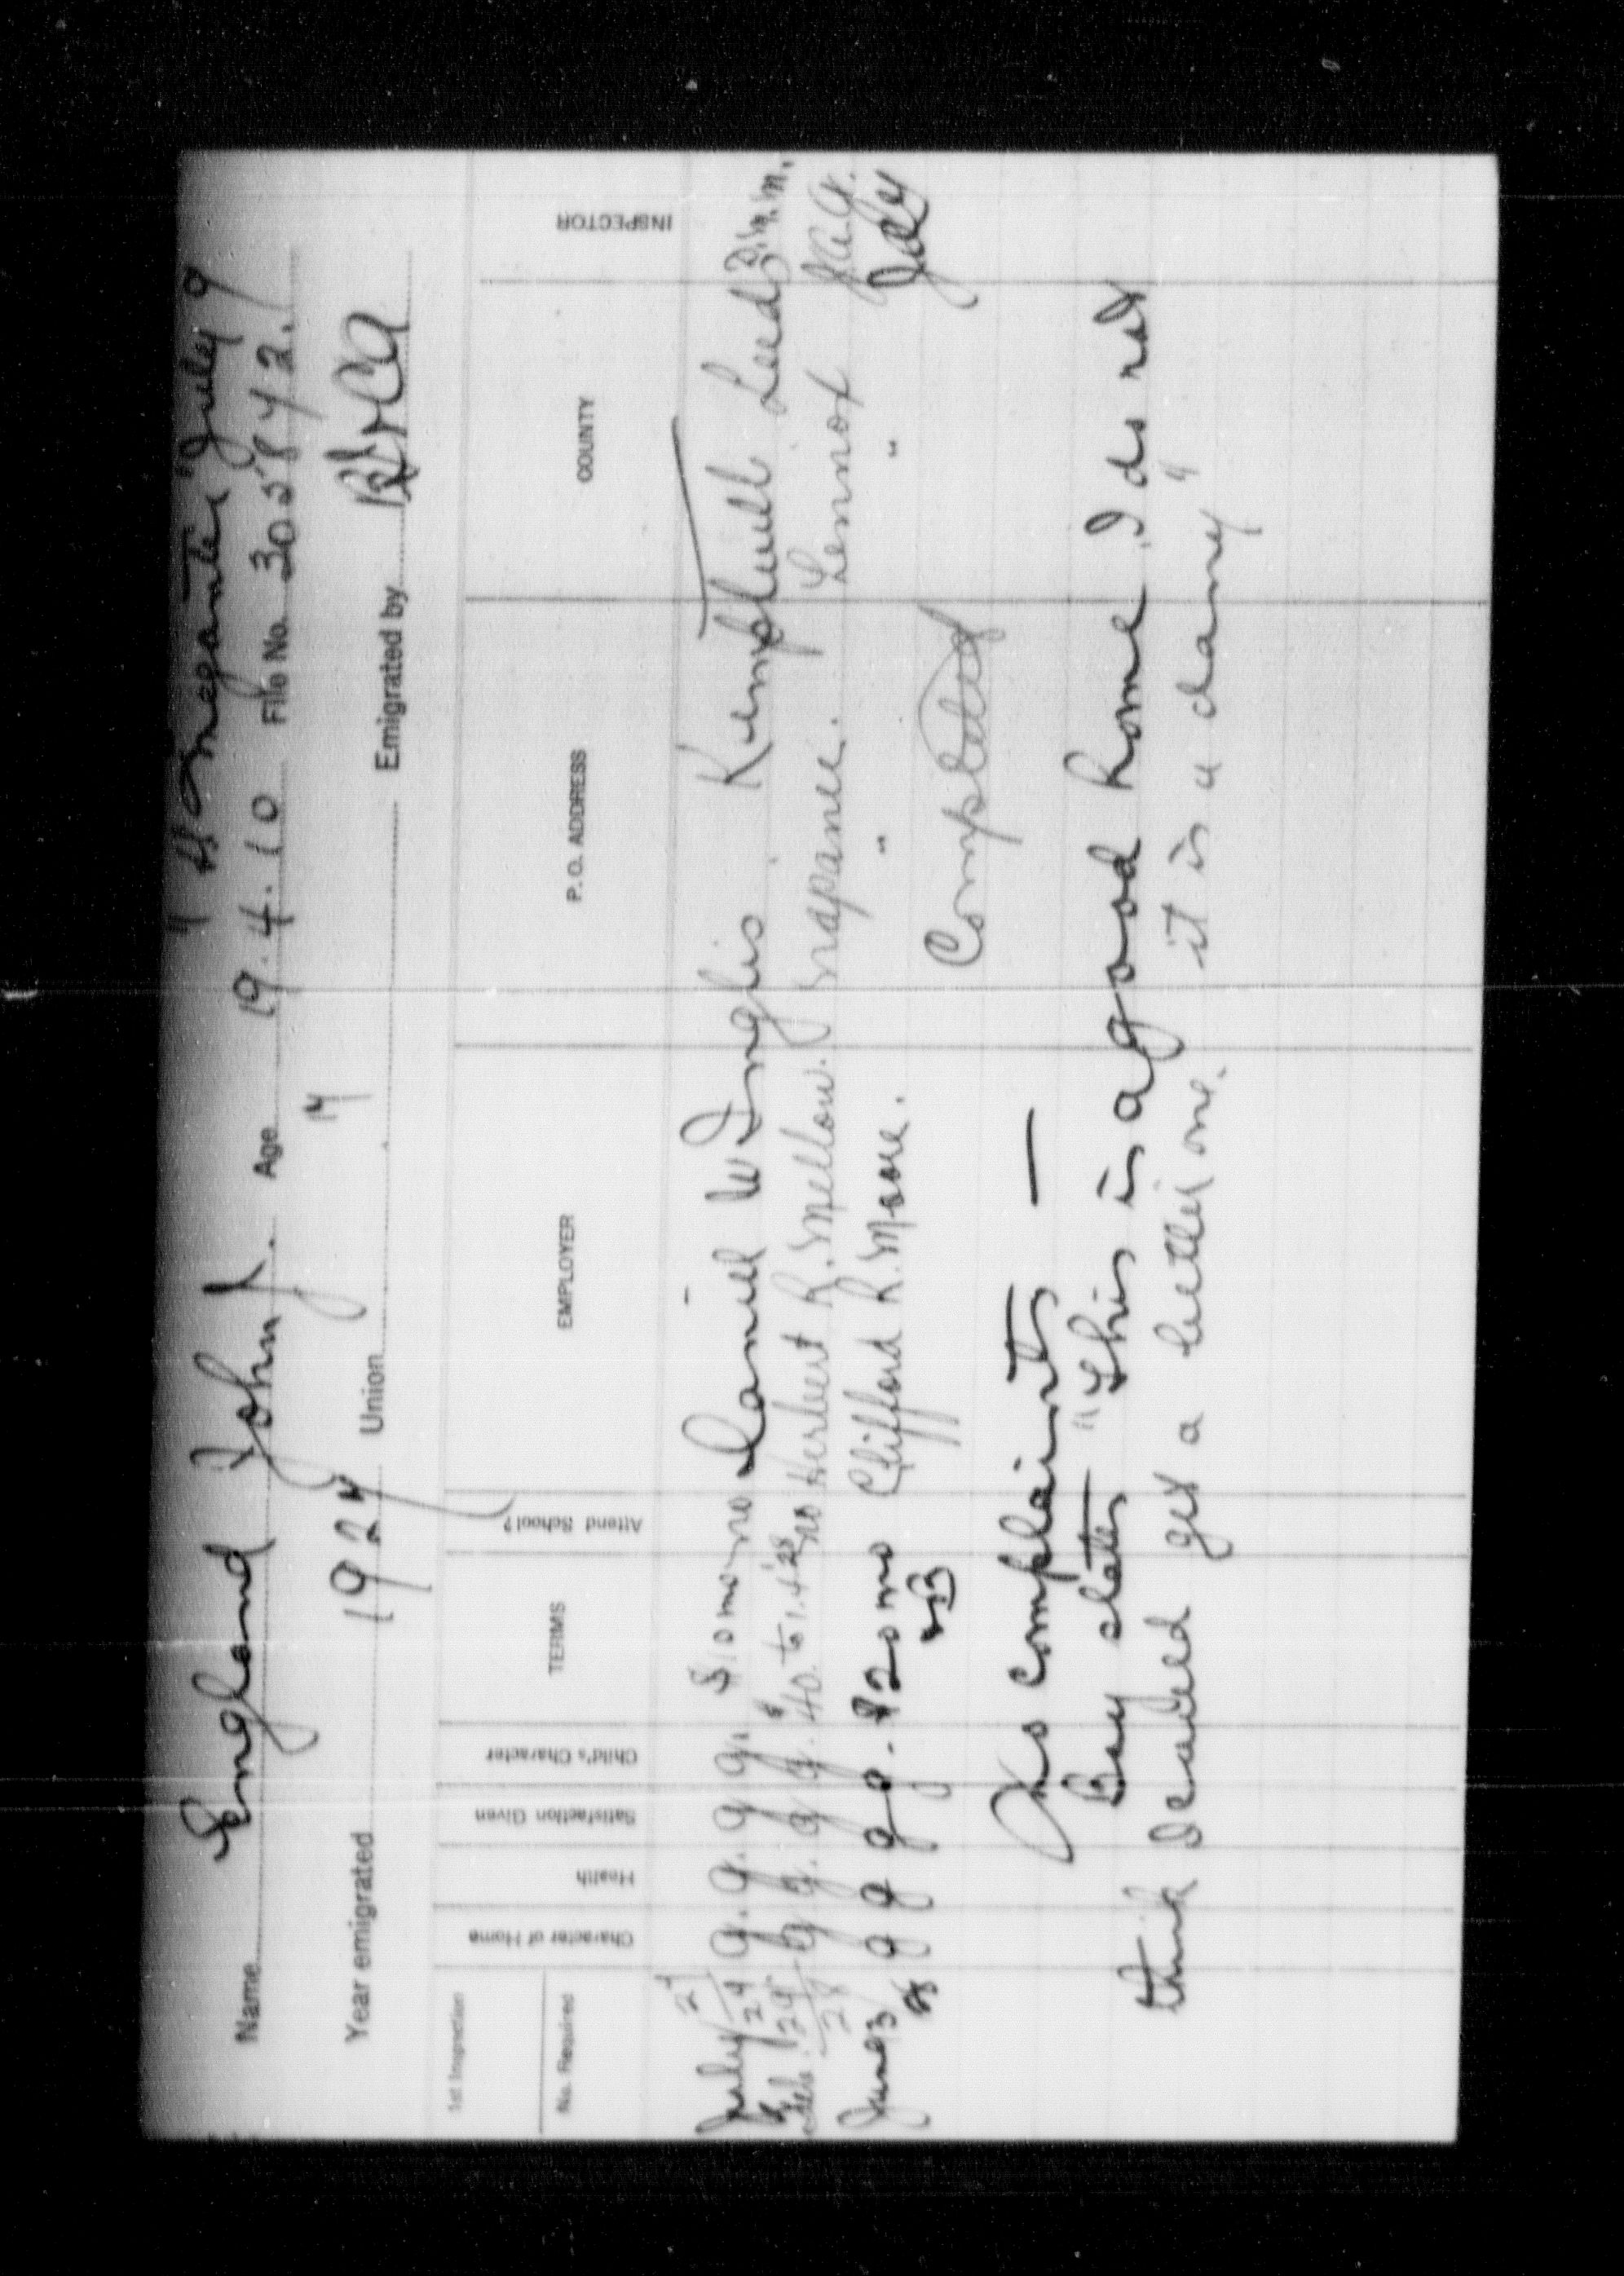 " Megantic" July 9
Name England John J. Age 19.4.10 File No. 305842.
17
Year emigrated 1927 Union Emigrated by
1st Inspection
No. Required
Character of Home
Health
Satisfaction Given
Child's Character
TERMS
Attend School?
EMPLOYER
P. O. ADDRESS
COUNTY
INSPECTOR
July g. g. g g. $10 mo no Daniel W Inglis Kemptville Leeds
g g. g g. $40. to 1.4.28 no Herbert R. Mellow. Napanee. Lennox
June 3 g g g g. $20 mo Clifford R. Moore. " "
28
Completed
No complaints —
Boy states "This is a good home, I do not
think I could get a better one. it is a dairy"